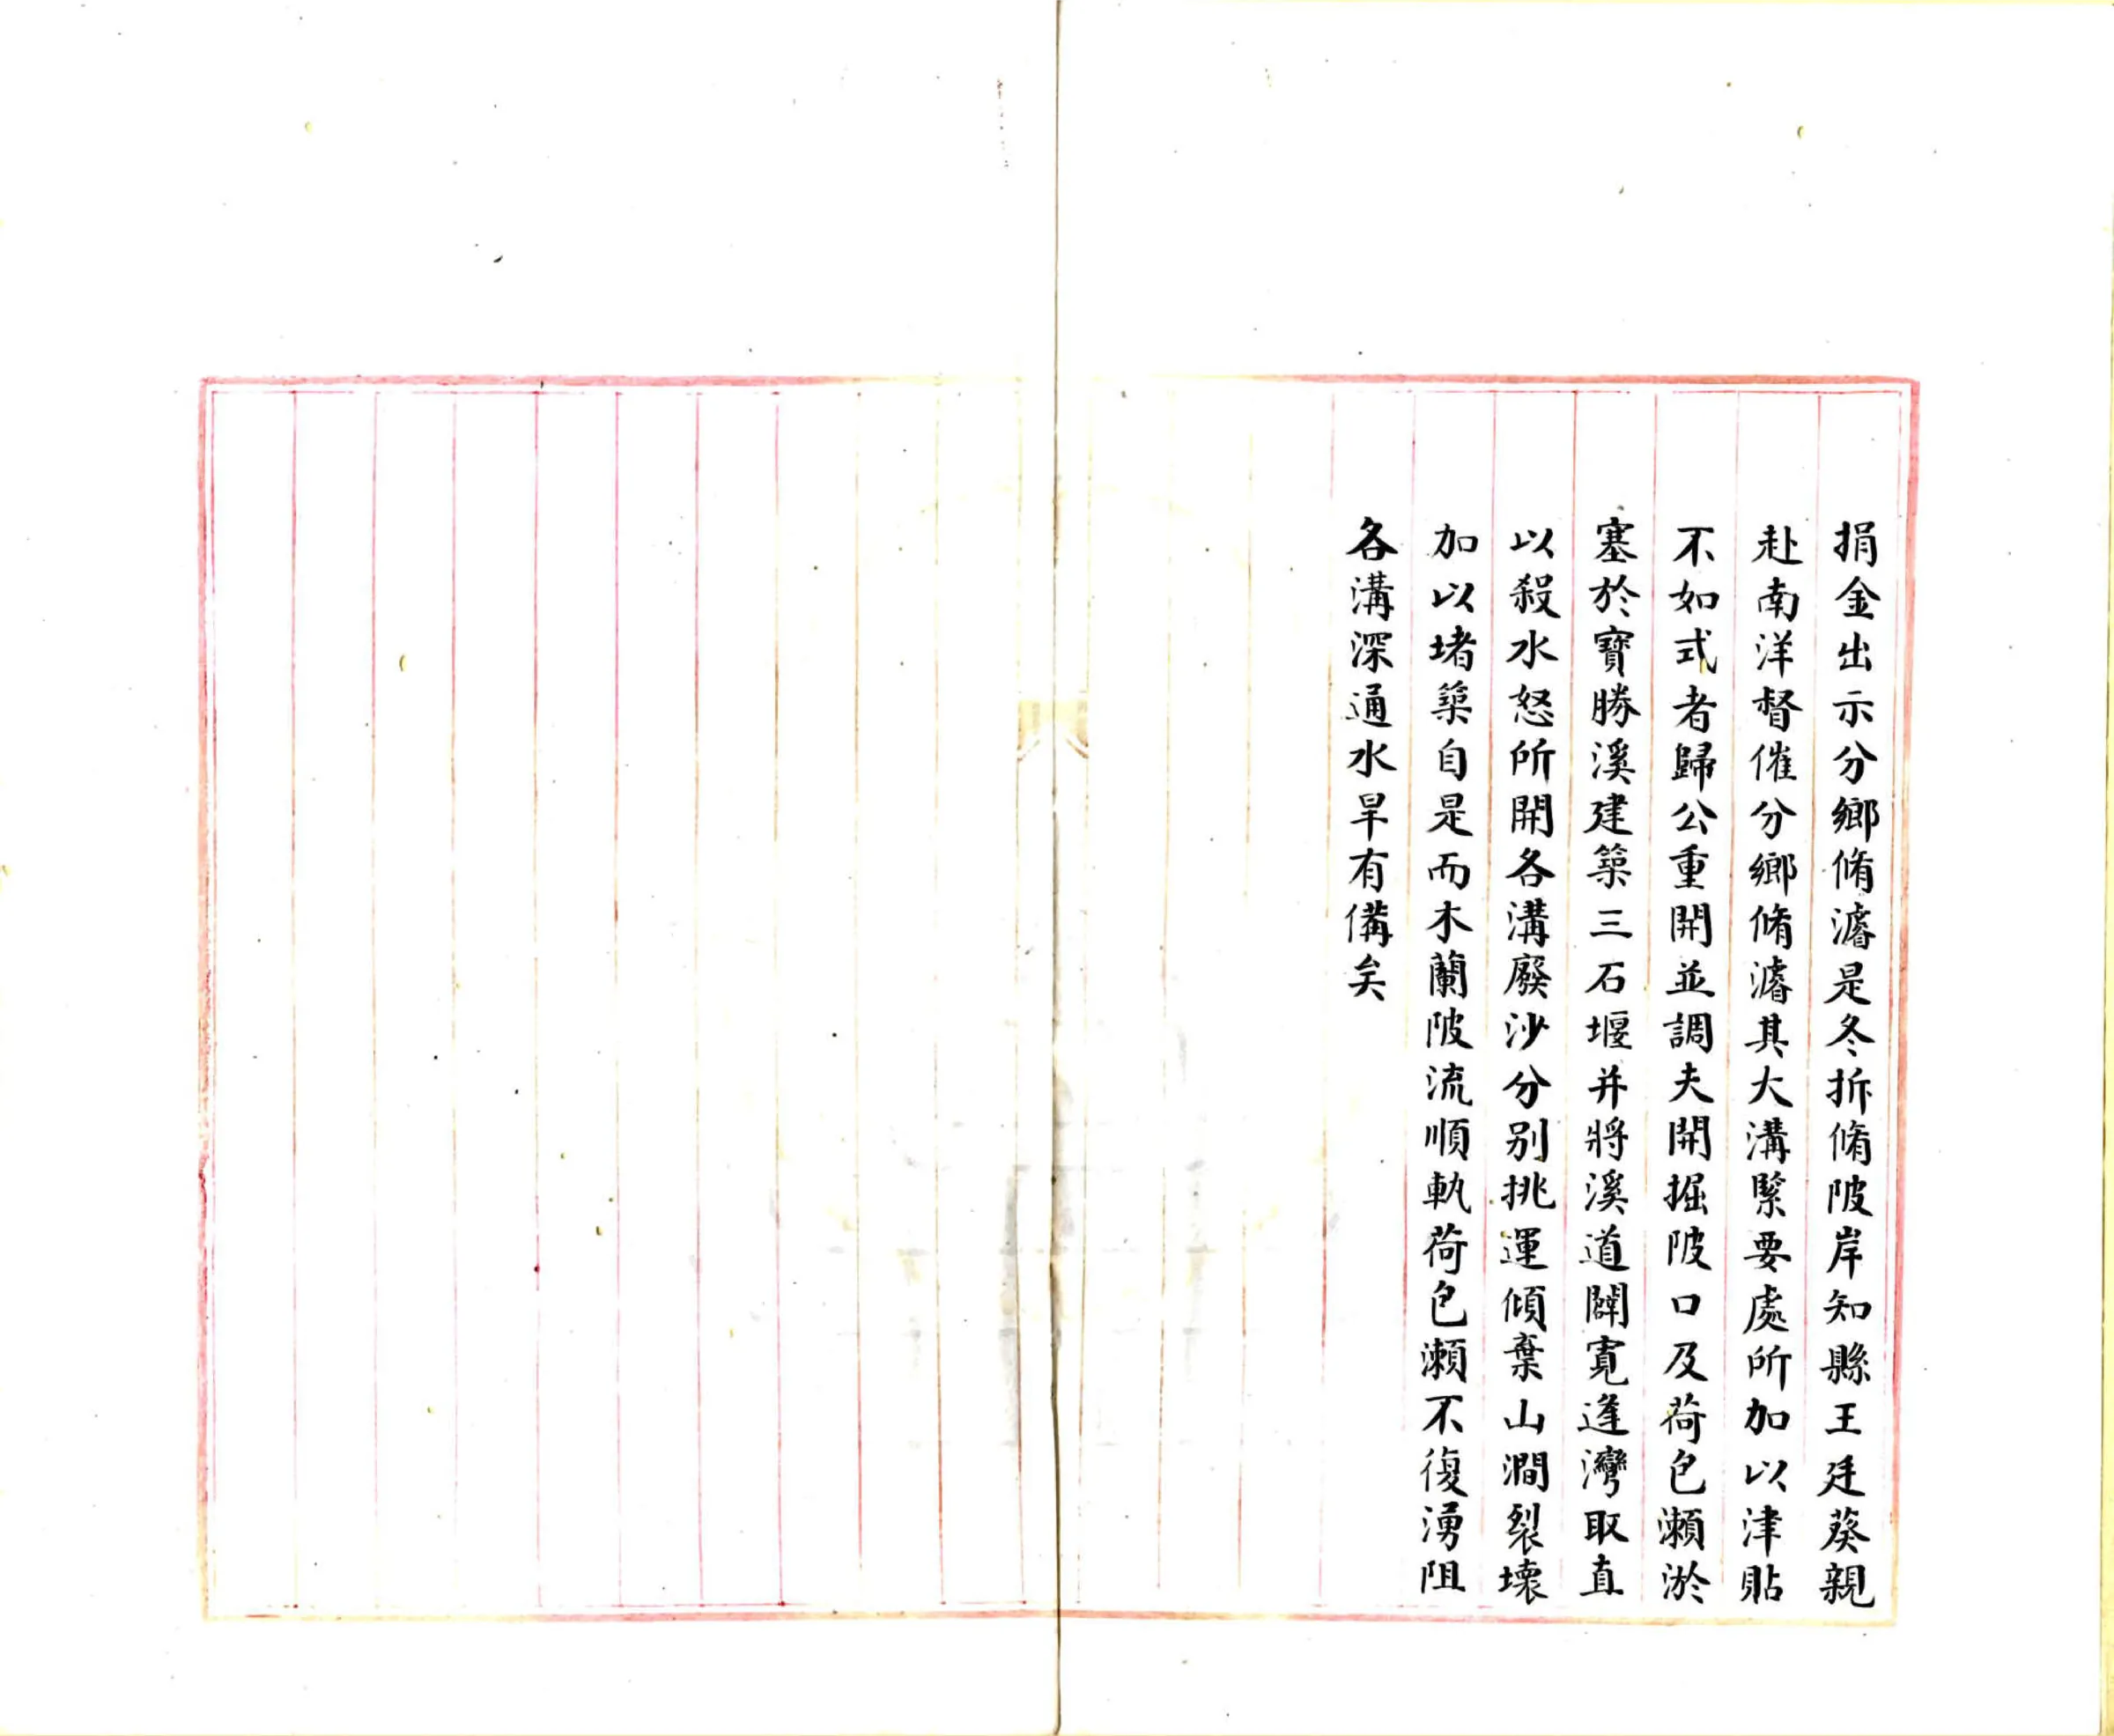 捐金出示分鄉脩濬是冬拆脩陂岸知縣王廷葵親
赴南洋督催分鄉脩濬其大溝緊要處所加以津貼
不如式者歸公重開並調夫開掘陂口及荷包瀨淤
塞於寶勝溪建築三石堰并將溪道闢寬逢灣取直
以殺水怒所開各溝廢沙分別挑運傾棄山澗裂壞
加以堵築自是而木蘭陂流順軌荷包瀨不復湧阻
各溝深通水旱有備矣